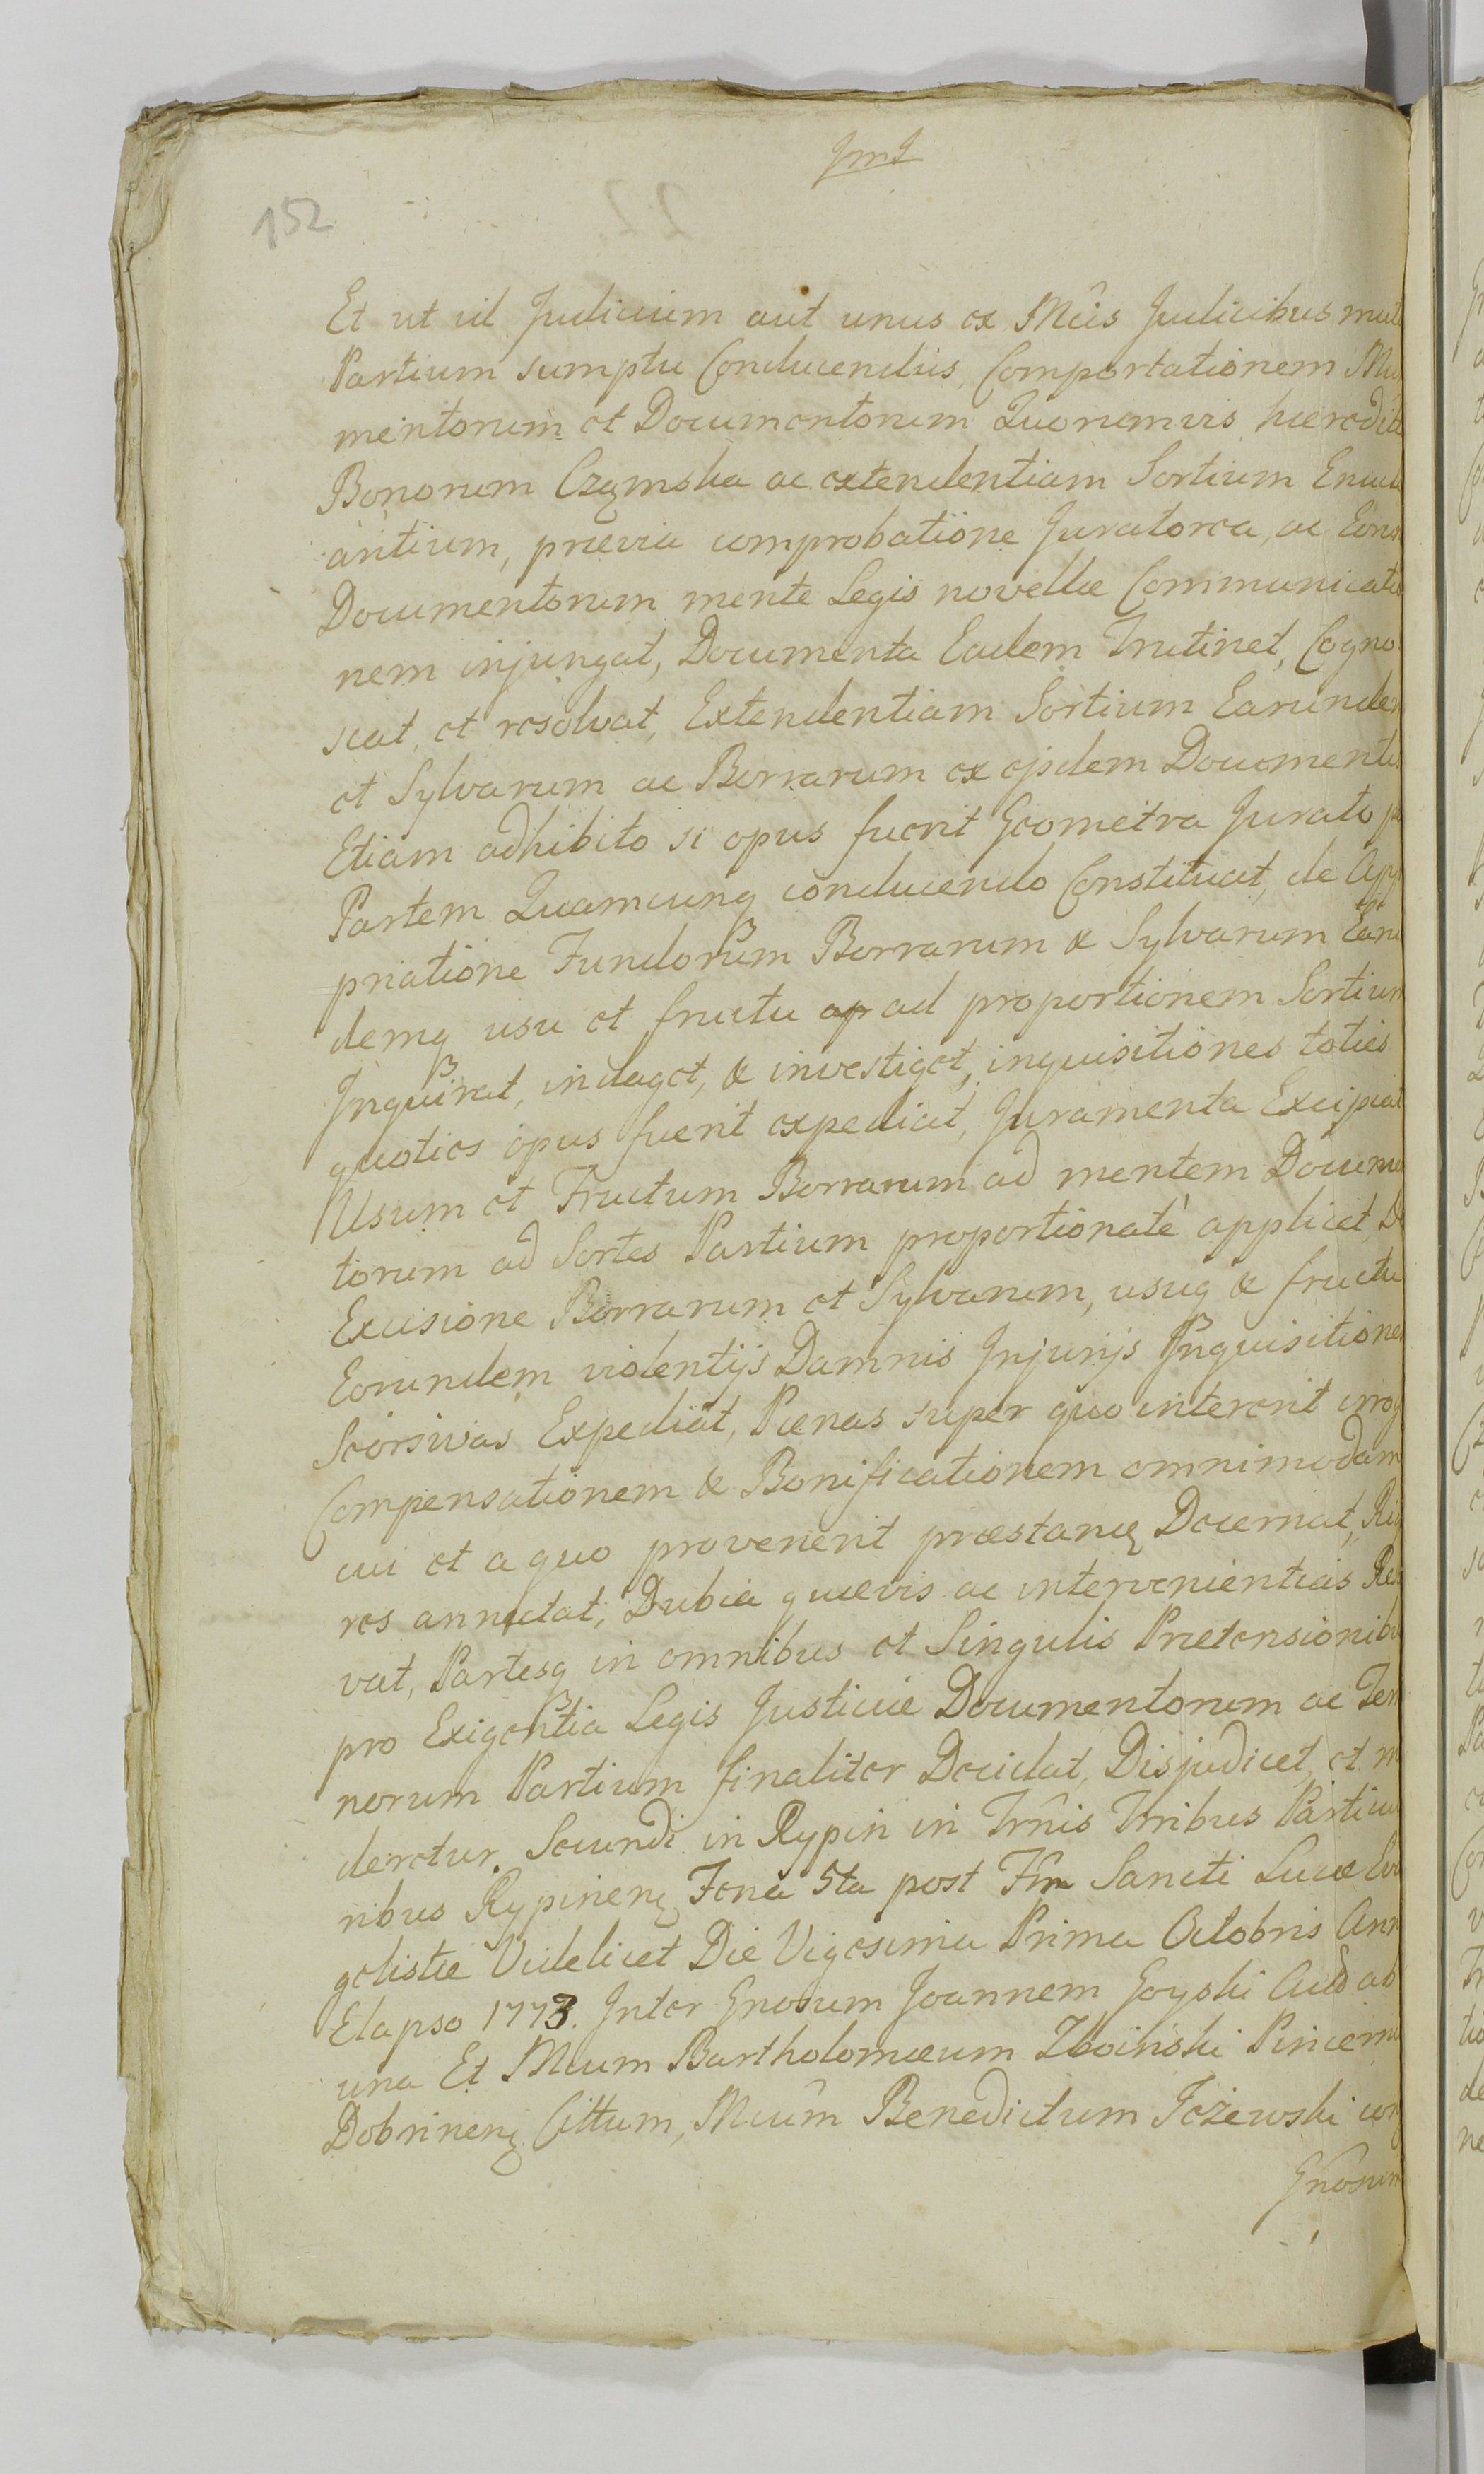 JmJ
152
Et ut vel Judicium aut unus ex Mcis Judicibus mut
Partium sumptu Conducendus, Comportationem Mu
mentorum et Documentorum Quorumvis hæredit
Bonorum Czymska ac extendentiam Sortium Enucle
antium, prævia comprobatione Juratorea, ac Eoru
Documentorum mente Legis novellæ Communicatio
nem injungat, Documenta Eadem Trutinet, Cogno
scat, et resolvat, Extendentiam Sortium Earundem
et Sylvarum ac Borrarum ex ejsdem Documentis
Etiam adhibito si opus fuerit Geometra Jurato p
Partem Quamcunq conducendo Constituat, de App
priatione Fundorum Borrarum & Sylvarum Earu
demq usu et fructu ap ad proportionem Sortium
Inquirat, indaget, & investiget, inquisitiones toties
quoties opus fuerit expediat, Juramenta Excipiat
Usum et Fructum Borrarum ad mentem Docume
torum ad Sortes Partium proportionatè applicet, D
Excisione Borrarum et Sylvarum, usuq & fructu
Eorundem violentijs Damnis Injurijs Inquisitiones
Seorsivas Expediat, Pœnas super quo intererit irrog
Compensationem & Bonificationem omnimodam
cui et a quo provenerit præstanę Decernat, Rig
res annectat, Dubia quævis ac intervenientias Re
vat, Partesq in omnibus et Singulis Prætensionibu
pro Exigentia Legis Justiciæ Documentorum ac Ter
norum Partium finaliter Decidat, Disjudicet, et m
deretur. Secundi in Rypin in Trnis Trribus Particu
ribus Rypinenę Feria 5ta post Fm Sancti Lucæ Eva
gelistæ Videlicet Die Vigesima Prima Octobris Ann
Elapso 1773. Inter Gnosum Joannem Goyski Actd ab
una Et Mcum Bartholomæum Zboinski Pincerna
Dobrinenę Cittum, Mcûm Benedictum Jeżewski con
Gnosum